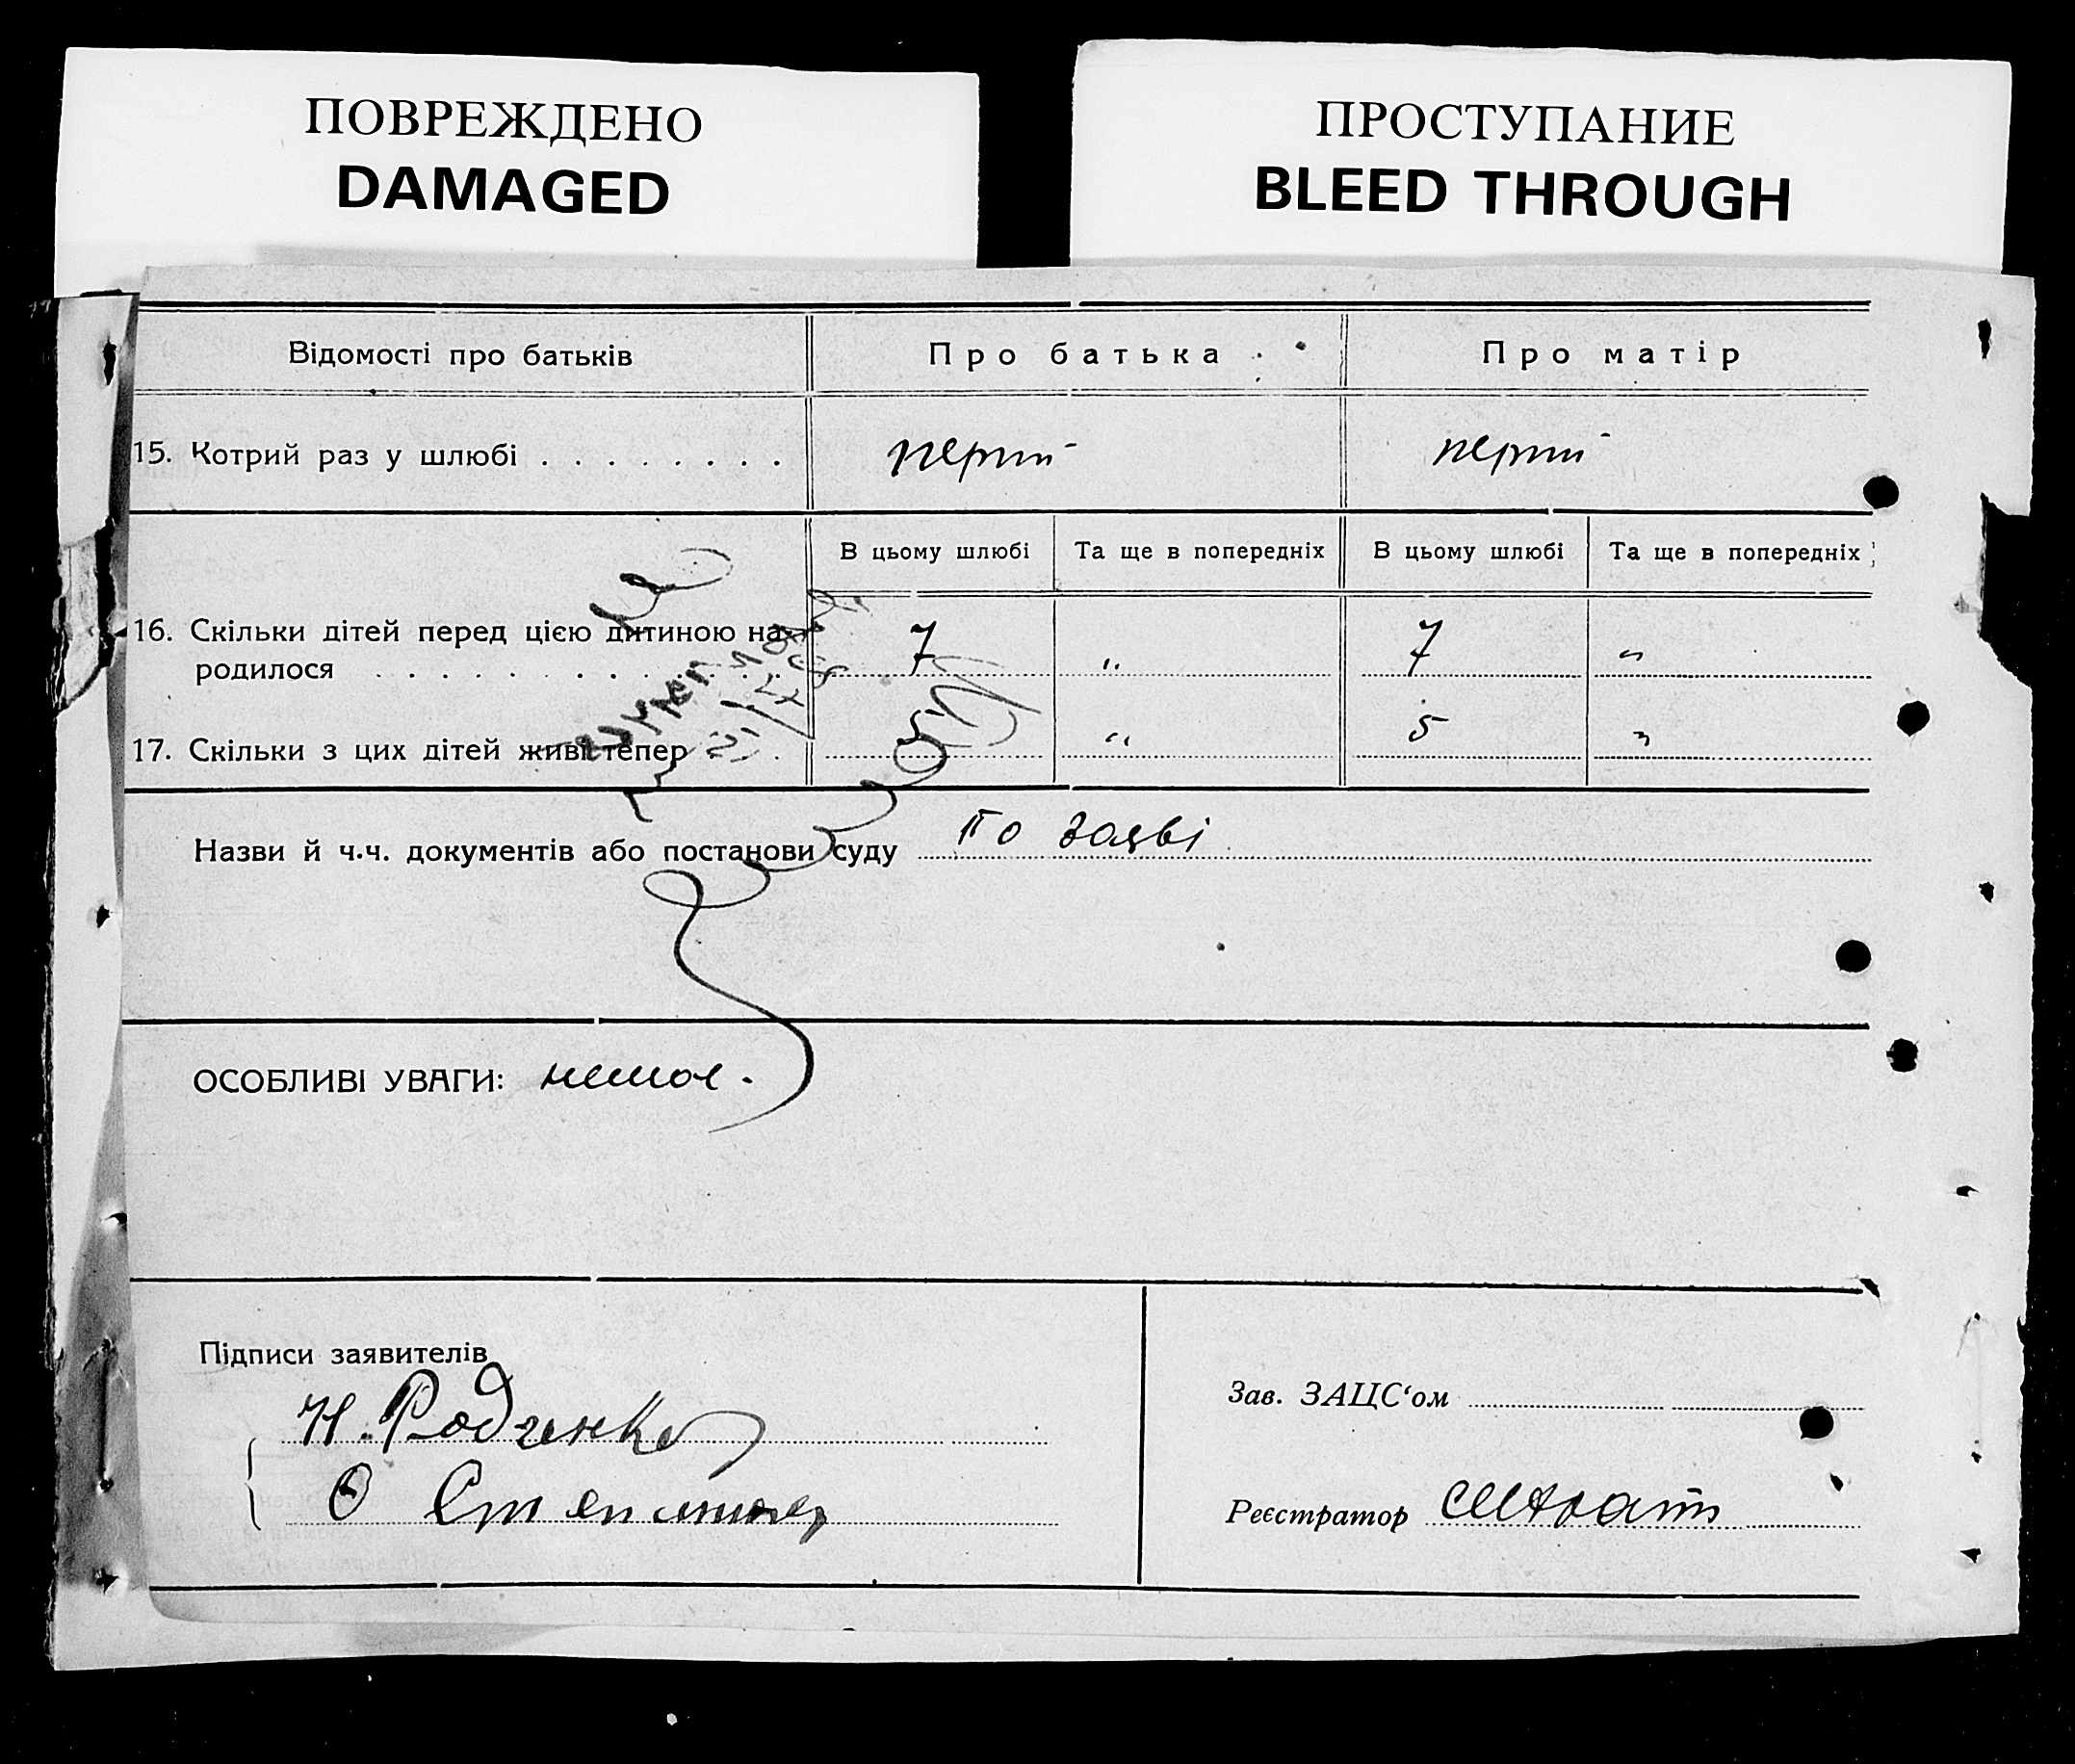 ПОВРЕЖДЕНО
DAMAGED
ПРОСТУПАНИЕ
BLEED THROUGH
Відомості про батьків
Про батька
Про матір
15. Котрий раз у шлюбі . . . . . . . .
перший
перший
В цьому шлюбі
Та ще в попередніх
В цьому шлюбі
Та ще в попередніх
16. Скільки дітей перед цією дитиною на-
родилося
7
"
7
"
17. Скільки з цих дітей живі тепер
5
"
5
"
Назви й ч.ч. документів або постанови суду По заяві
ОСОБЛИВІ УВАГИ: немає.
Підписи заявителів
Н. Родченко
О
Зав. ЗАЦС‘ом
Реєстратор